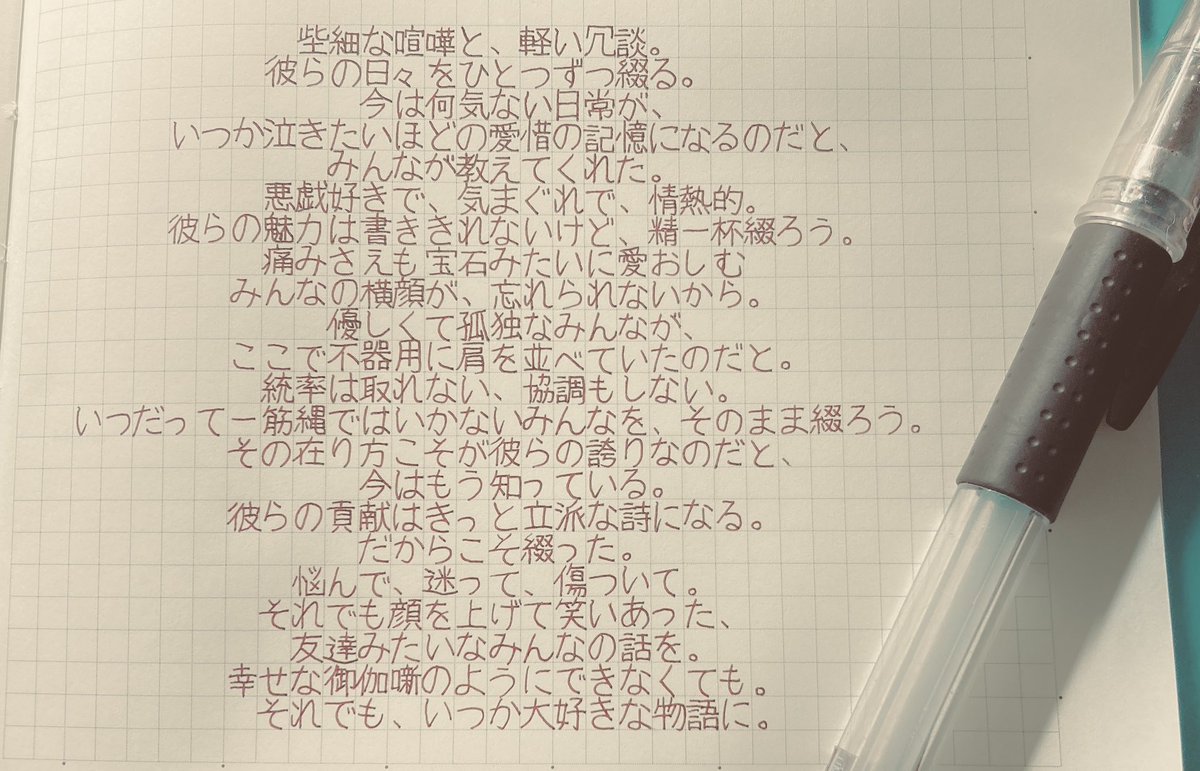 些細な喧嘩と、軽い冗談。
彼らの日々をひとつずつ綴る。
今は何気ない日常が、
いつか泣きたいほどの愛惜の記憶になるのだと、
みんなが教えてくれた。
悪戯好きで、気まぐれで、情熱的。
彼らの魅力は書ききれないけど、精一杯綴ろう。
痛みさえも宝石みたいに愛おしむ
みんなの横顔が、忘れられないから。
優しくて孤独なみんなが、
ここで不器用に肩を並べていたのだと。
統率は取れない、協調もしない。
いつだって一筋縄ではいかないみんなを、そのまま綴ろう。
その在り方こそが彼らの誇りなのだと、
今はもう知っている。
彼らの貢献はきっと立派な詩になる。
だからこそ綴った。
悩んで、迷って、傷ついて。
それでも顔を上げて笑いあった、
友達みたいなみんなの話を。
幸せな御伽噺のようにできなくても。
それでも、いつか大好きな物語に。